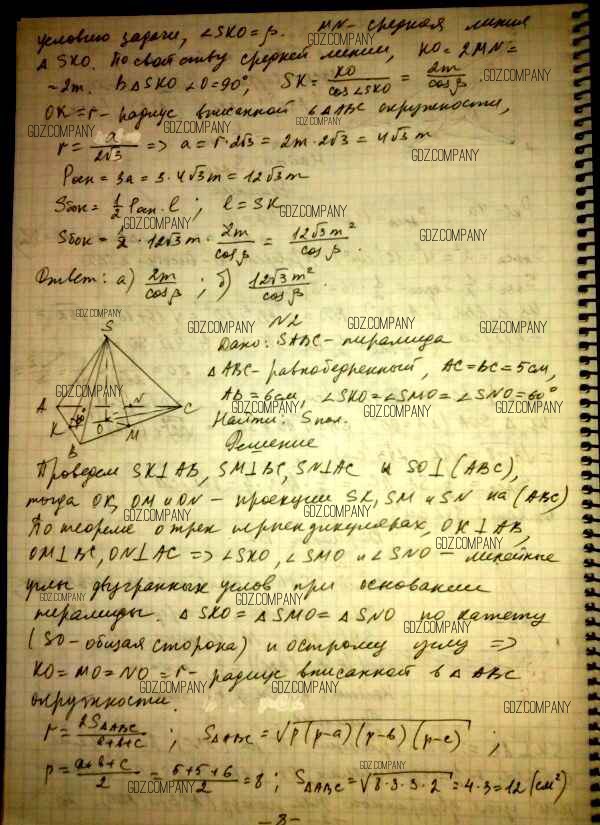 условию задачи, ∠SKO = β. MN - средная линия
△ SKO. По свойству средней линии, KO = 2MN =
= 2m. В △ SKO ∠O = 90°, SK = KO / cos∠SKO = 2m / cos β.
OK = r - радиус вписанной в △ABC окружности,
r = a / 2√3 => a = r · 2√3 = 2m · 2√3 = 4√3 m
Pосн = 3a = 3 · 4√3 m = 12√3 m
Sбок = 1/2 Pосн · l ; l = SK
Sбок = 1/2 · 12√3 m · 2m / cos β = 12√3 m² / cos β.
Ответ: а) 2m / cos β ; б) 12√3 m² / cos β.
N2
Дано: SABC - пирамида
△ ABC - равнобедренный, AC = BC = 5 см,
AB = 6 см, ∠SKO = ∠SMO = ∠SNO = 60°
Найти: Sпол.
Решение
S
A
K
B
O
M
N
C
60°
Проведем SK⊥AB, SM⊥BC, SN⊥AC и SO⊥(ABC),
тогда OK, OM и ON - проекции SK, SM и SN на (ABC)
По теореме о трех перпендикулярах, OK⊥AB,
OM⊥BC, ON⊥AC => ∠SKO, ∠SMO и ∠SNO - линейные
углы двугранных углов при основании
пирамиды. △ SKO = △ SMO = △ SNO по катету
(SO - общая сторона) и острому углу =>
KO = MO = NO = r - радиус вписанной в △ ABC
окружности.
r = 2S△ABC / a+b+c ; S△ABC = √p(p-a)(p-b)(p-c) ;
p = a+b+c / 2 = 5+5+6 / 2 = 8 ; S△ABC = √8·3·3·2 = 4·3 = 12 (см²)
- 8 -
GDZ.COMPANY